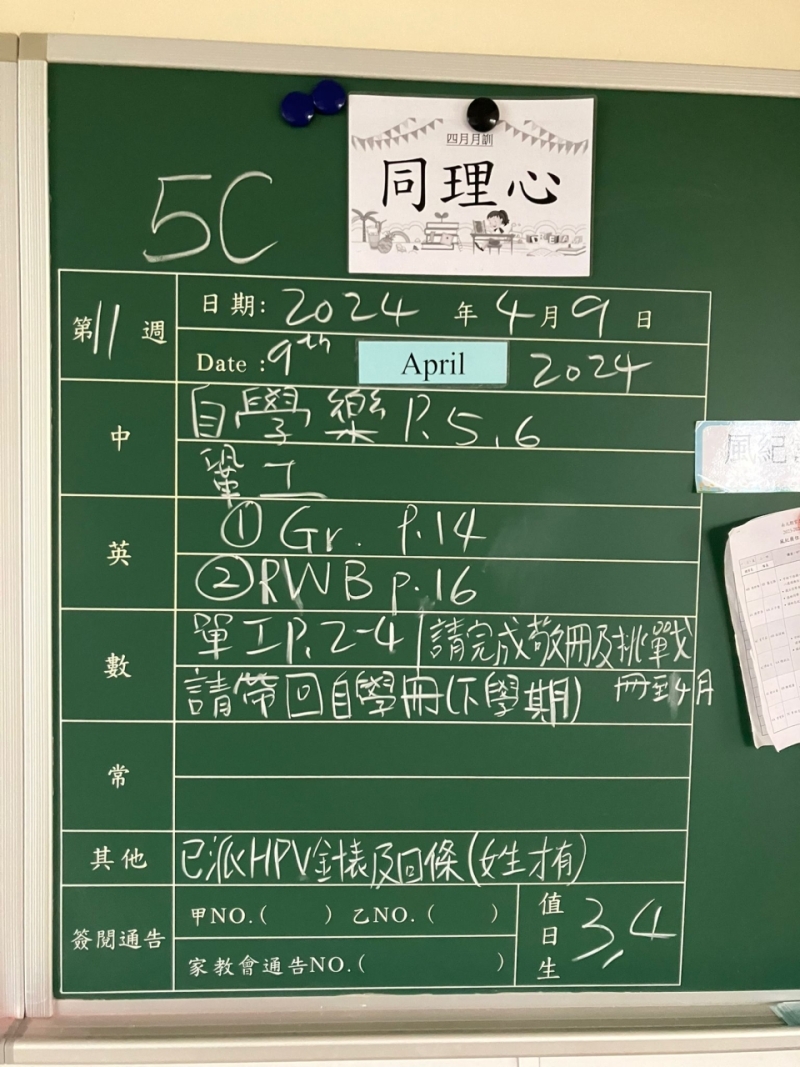 四月月訓
同理心
5C
第11週
日期: 2024 年 4 月 9 日
Date : 9th April 2024
中
自學樂 P.5,6
單工
英
① Gr. p.14
② RWB p.16
數
單工P.2-4 請完成敬冊及挑戰
請帶回自學冊(下學期) 冊至4月
常
其他
已派HPV針表及回條(女生才有)
簽閱通告
甲NO.( ) 乙NO.( )
家教會通告NO.( )
值日生 3,4
風紀